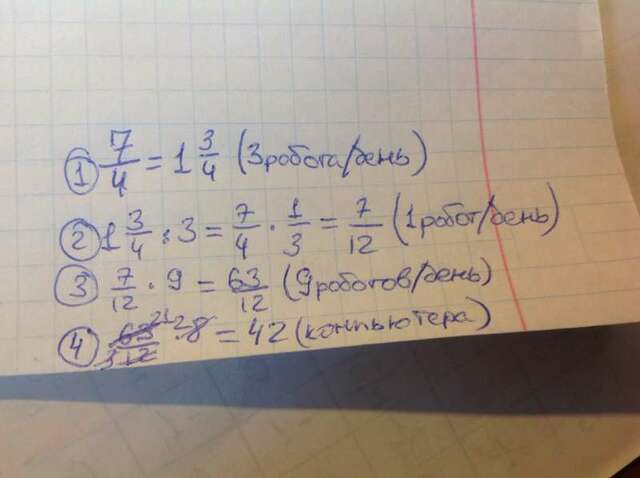 ① 7/4 = 1 3/4 (3 робота/день)
② 1 3/4 : 3 = 7/4 · 1/3 = 7/12 (1 робот/день)
③ 7/12 · 9 = 63/12 (9 роботов/день)
④ 63 21/3 12 · 2 8 = 42 (компьютера)